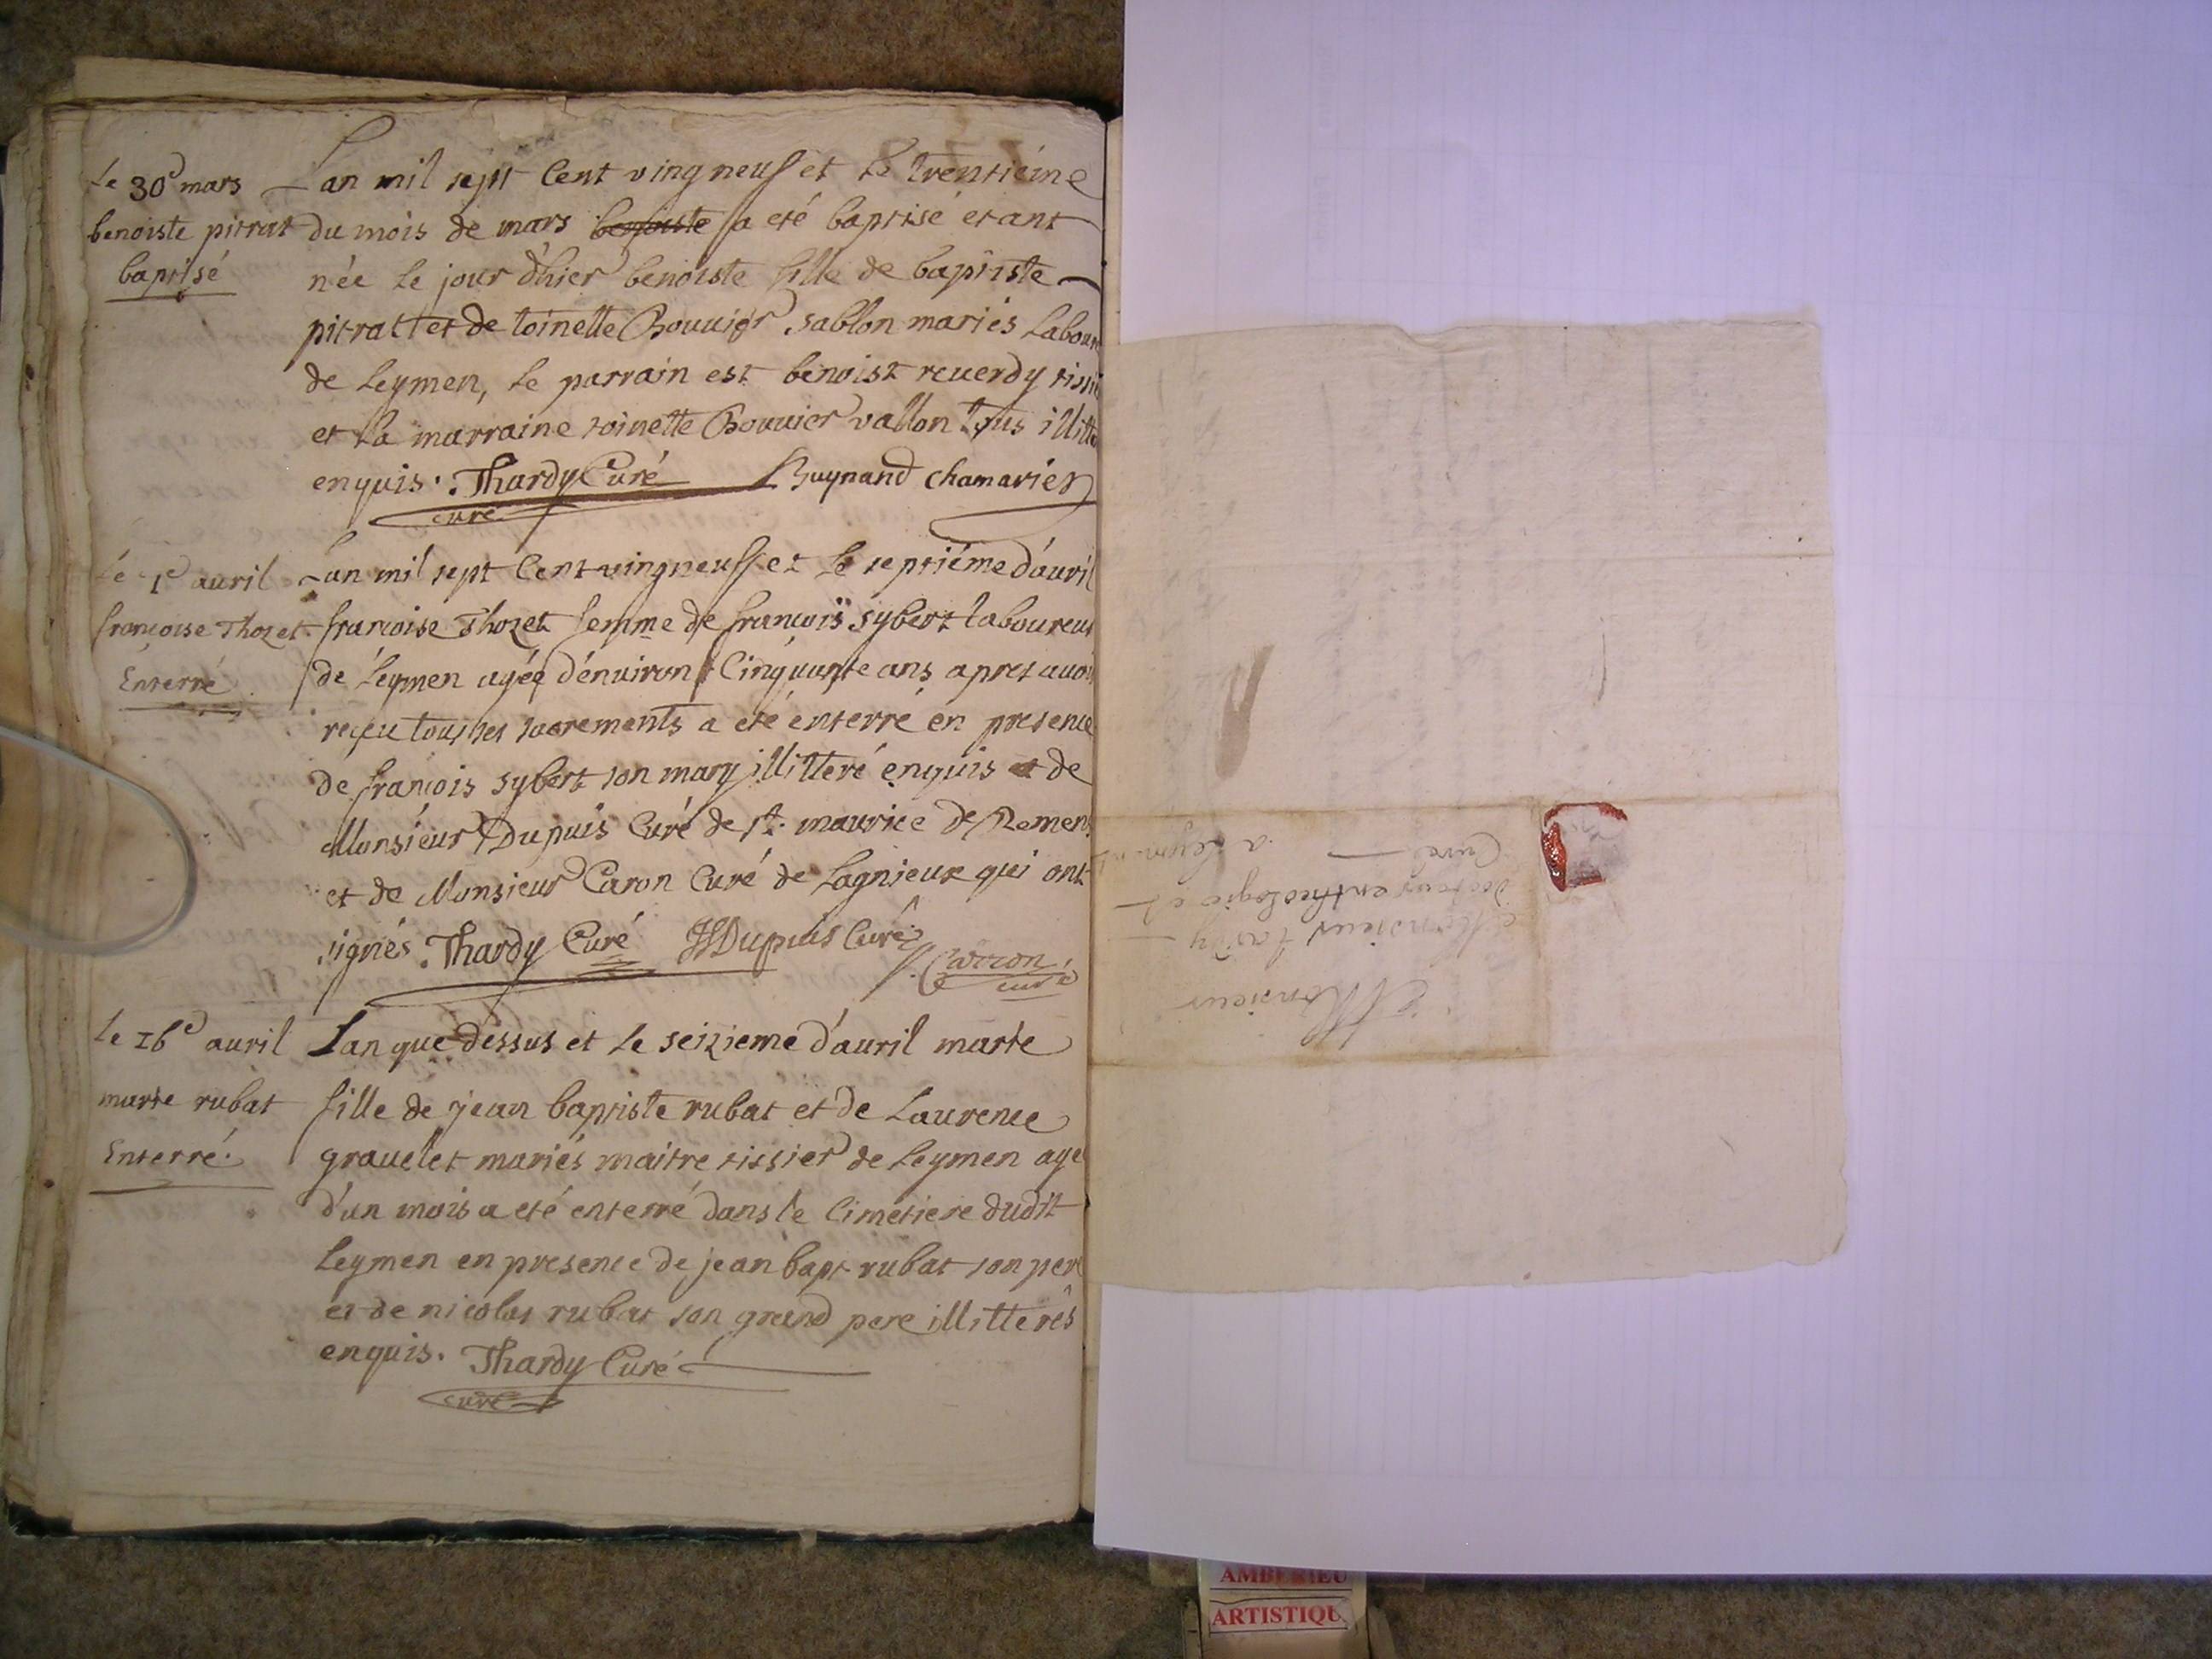 Le 30e mars
benoiste pitrat
baptisé
Lan mil sept Cent vingneuf et Le trentiéme
du mois de mars benoiste a eté baptisé etant
née Le jour d'hier benoiste fille de baptiste
pitrat et de toinette Bouuier Sablon mariés Labour
de Leymen, Le parrain est benoist reuerdy tissie
et La marraine toinette Bouuier vallon tous illitte
enquis. Thardy Curé Buynand Chamarier
curé
Le 7e auril
francoise Thozet
Enterré
Lan mil sept Cent vingneuf et Le septiéme d'auril
francoise Thozet femme de francois sybert laboureur
de Leymen agée d'énuiron Cinquante ans apres auoi
reçeu tous ses sacrements a eté énterré én presence
de francois sybert son mary illitteré enquis et de
Monsieur Dupuis Curé de st. maurice de Remens
et de Monsieur Caron Curé de Lagnieux qui ont
signés Thardy Curé Dupuis Curé
Carron
curé
Le 16e auril
marte rubat
Enterré
Lan que déssus et Le seizieme d'auril marte
fille de jean baptiste rubat et de Laurence
grauelet mariés maitre tissier de Leymen age
d'un mois a eté enterré dans le Cimetiere dudit
Leymen en presence de jean bapt rubat son pere
et de nicolas rubat son grand pere illitterés
enquis. Thardy Curé
curé
Monsieur
Monsieur tardy
docteur en theologie et
Curé
a Leyment
AMBERIEU
ARTISTIQU